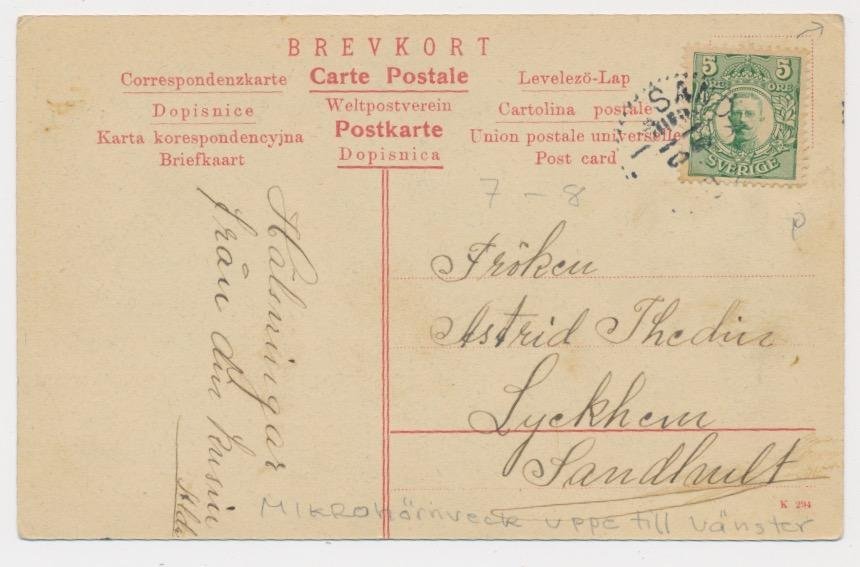 BREVKORT
Correspondenzkarte
Carte Postale
Levelezö-Lap
Dopisnice
Weltpostverein
Cartolina postale
Karta korespondencyjna
Postkarte
Union postale universelle
Briefkaart
Dopisnica
Post card
5 5
ÖRE
SVERIGE
SAND
7-8
p
Hälsningar
från din kusin
Fröken
Astrid Thedin
Lyckhem
Sandhult
K 294
Mikrohörnveck uppe till vänster